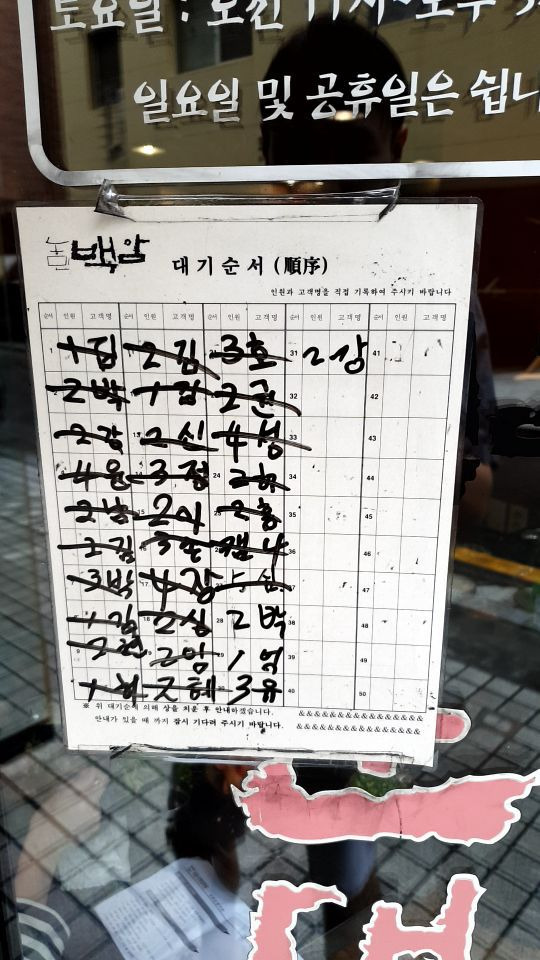 토요일 : 오전 11시~오후
일요일 및 공휴일은 쉽니
백암
대기순서 (順序)
인원과 고객명을 직접 기록하여 주시기 바랍니다
순서 인원 고객명 순서 인원 고객명 순서 인원 고객명 순서 인원 고객명 순서 인원 고객명
1 김 2 김 3 호 31 2 상 41
2 박 1 김 2 권 42
2 강 2 신 4 성 33 43
4 윤 3 정 24 2 34 44
2 2 사 2 홍 35 45
2 김 3 36 46
3 박 17 4 장 47
1 김 18 2 심 28 2 박 38 48
9 2 2 임 1 39 49
1 2 혜 3 유 40 50
※ 위 대기순에 의해 상을 치운 후 안내하겠습니다. &&&&&&&&&&&&&&&&
안내가 있을 때 까지 잠시 기다려 주시기 바랍니다. &&&&&&&&&&&&&&&&